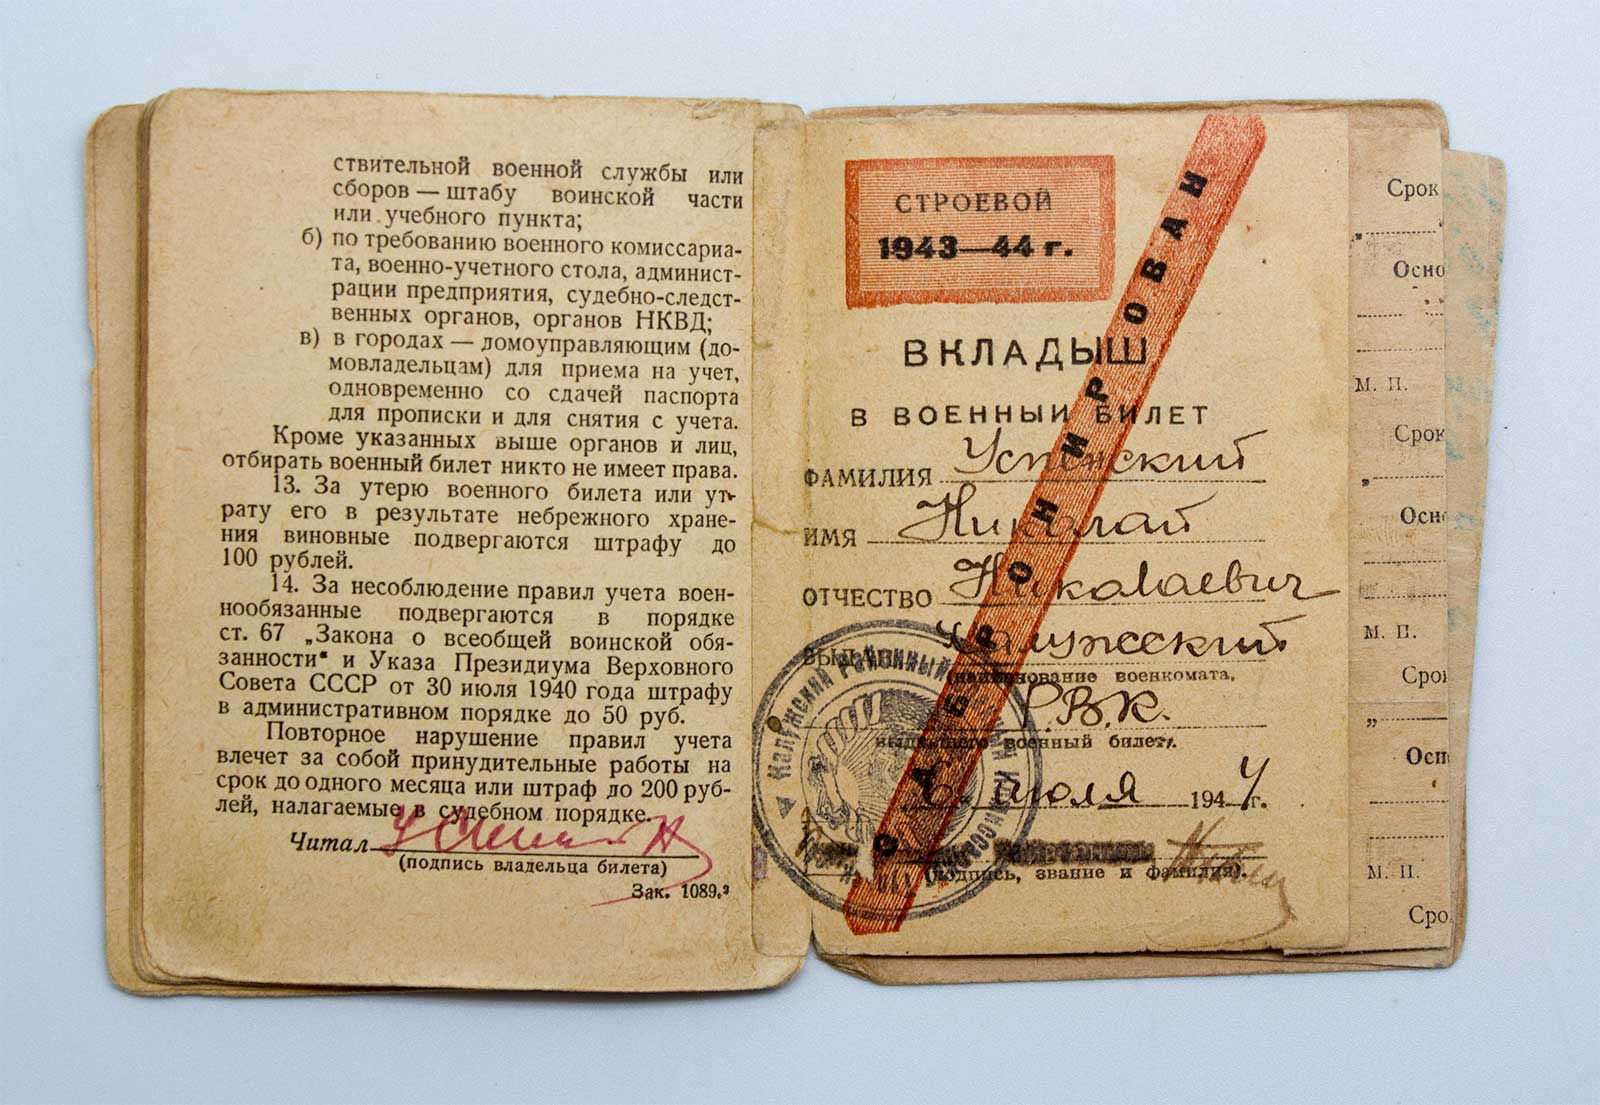 ствительной военной службы или
сборов — штабу воинской части
или учебного пункта;
б) по требованию военного комиссариа-
та, военно-учетного стола, админист-
рации предприятия, судебно-следст-
венных органов, органов НКВД;
в) в городах — домоуправляющим (до-
мовладельцам) для приема на учет,
одновременно со сдачей паспорта
для прописки и для снятия с учета.
Кроме указанных выше органов и лиц,
отбирать военный билет никто не имеет права.
13. За утерю военного билета или ут-
рату его в результате небрежного хране-
ния виновные подвергаются штрафу до
100 рублей.
14. За несоблюдение правил учета воен-
нообязанные подвергаются в порядке
ст. 67 „Закона о всеобщей воинской обя-
занности“ и Указа Президиума Верховного
Совета СССР от 30 июля 1940 года штрафу
в административном порядке до 50 руб.
Повторное нарушение правил учета
влечет за собой принудительные работы на
срок до одного месяца или штраф до 200 руб-
лей, налагаемые в судебном порядке.
Читал
(подпись владельца билета)
Зак. 1089.³
СТРОЕВОЙ
1943—44 г.
ЗАБРОНИРОВАН
ВКЛАДЫШ
В ВОЕННЫЙ БИЛЕТ
ФАМИЛИЯ Успенский
ИМЯ Николай
ОТЧЕСТВО Николаевич
ВЫДАН Калужский
(наименование военкомата,
Р.В.К.
выдавшего военный билет).
6 июля 1944 г.
(подпись, звание и фамилия).
Калужский Районный
Срок
„
Осно
М. П.
Срок
„
Осно
М. П.
Срок
„
Осно
М. П.
Сро